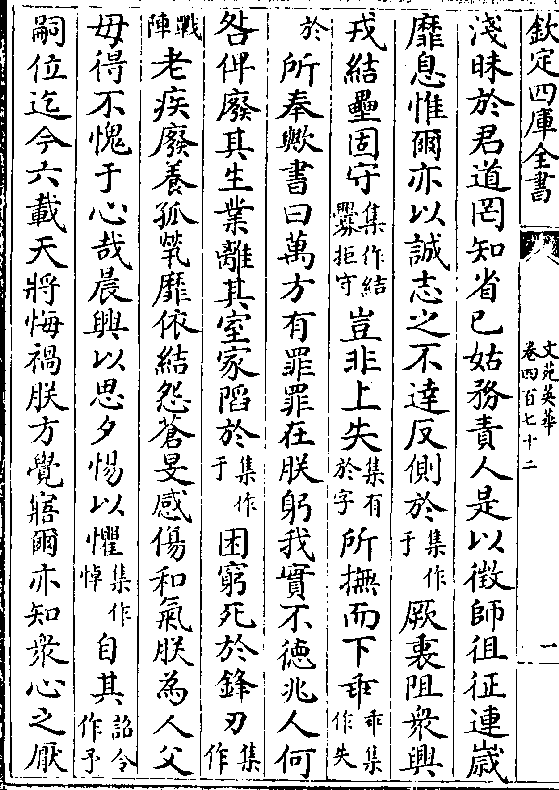 欽定四庫全書
文苑英華
卷四百七十二
一
淺昧於君道罔知省已姑務責人是以徴師徂征連嵗
靡息惟爾亦以誠志之不達反側於集作于厥裏阻衆興
戎結壘固守集作結釁拒守豈非上失集有於字所撫而下乖乖集作失
於所奉歟書曰萬方有罪罪在朕躬我實不徳兆人何
咎俾廢其生業離其室家陷於集作于困窮死於鋒刃集作
戰陣老疾廢養孤㷀靡依結怨蒼旻感傷和氣朕為人父
毋得不愧于心哉晨興以思夕惕以懼集作悼自其詔令作予
嗣位迄今六載天將悔禍朕方覺寤爾亦知衆心之厭